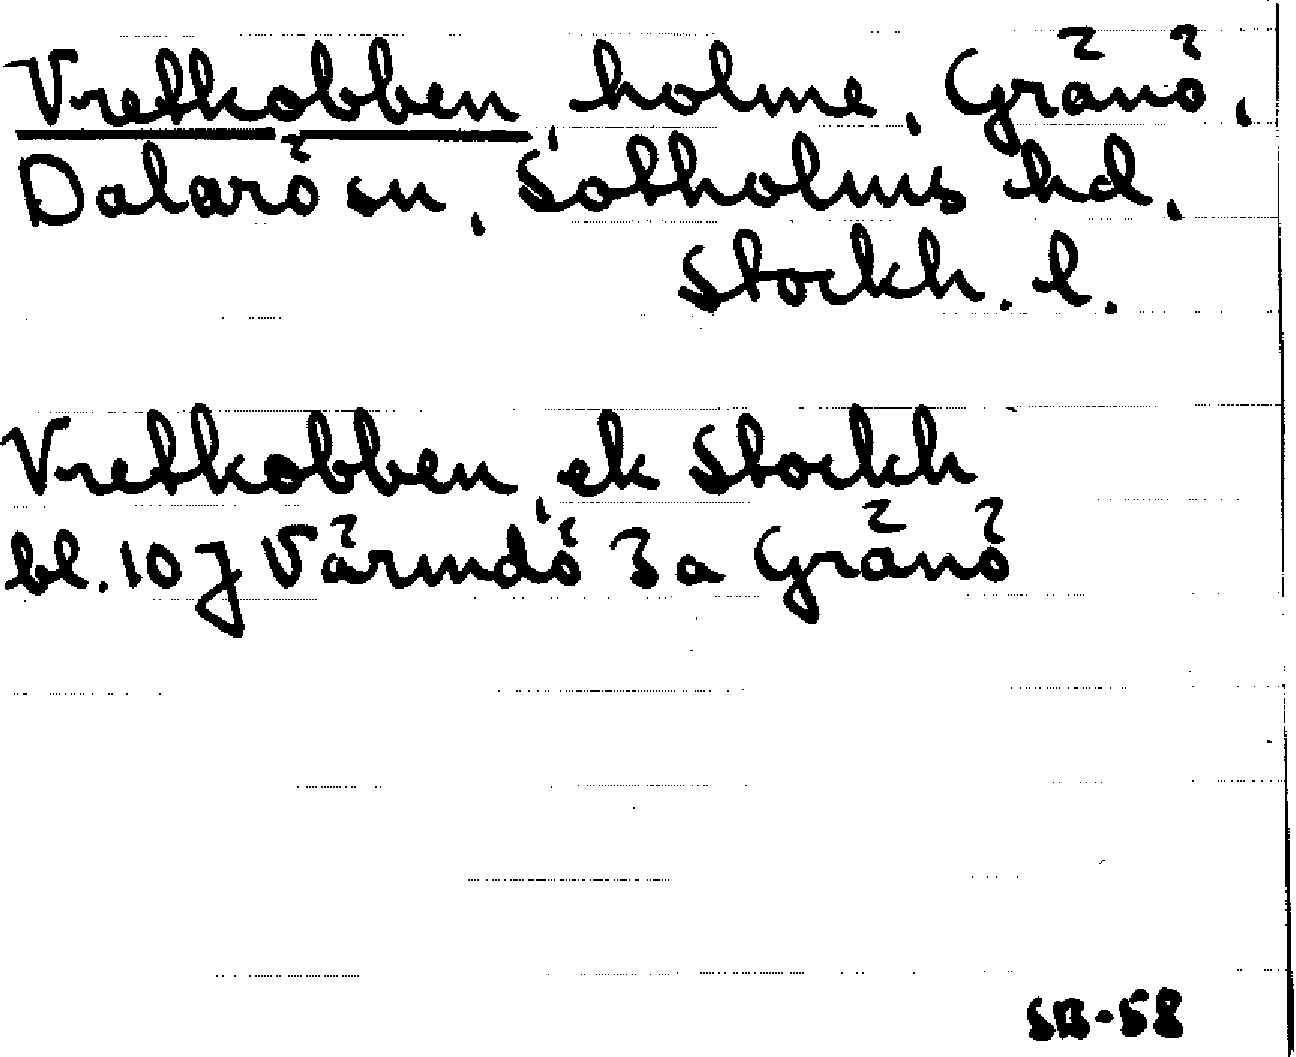 Vretkobben, holme, Gränö,
Dalarö sn, Sotholms hd,
Stockh. l.
Vretkobben, ek Stockh
bl. 10 J Värmdö 3a Gränö
SB-58